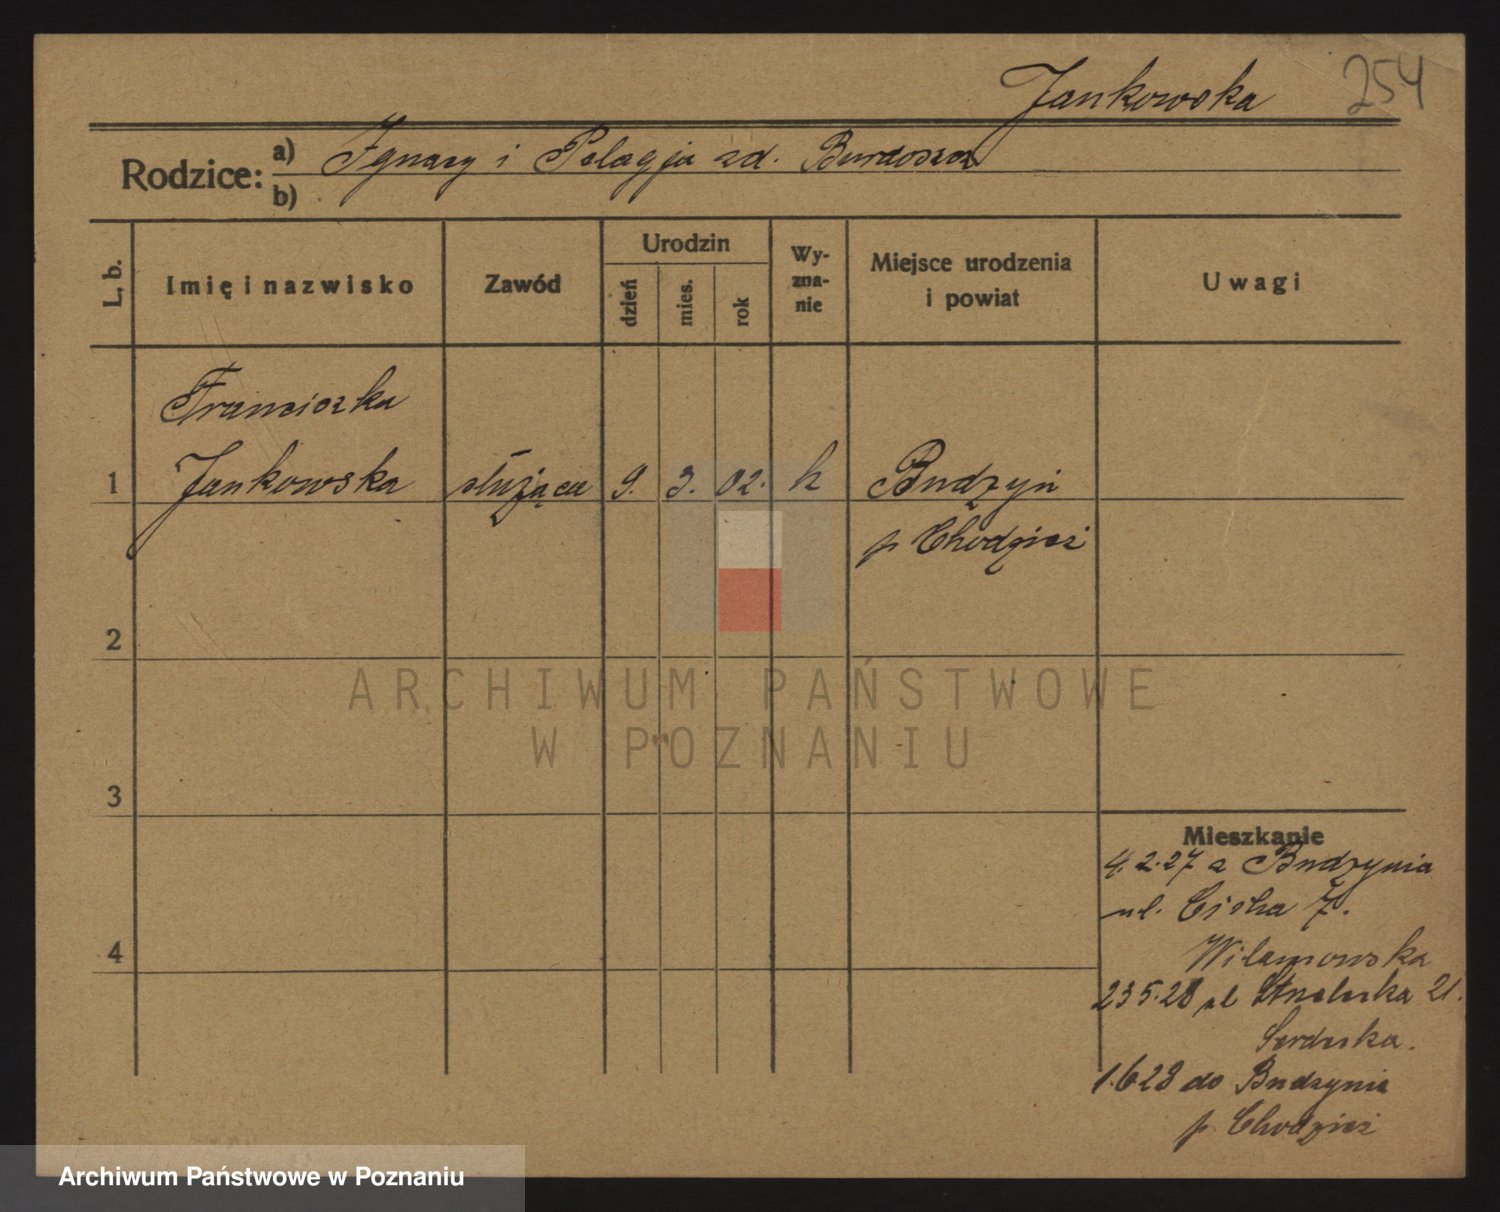 Jankowska 254
Rodzice: a) Ignacy i Pelagja zd.
b)
L. b. Imię i nazwisko Zawód Urodzin dzień mies. rok Wy-zna-nie Miejsce urodzenia i powiat Uwagi
Franciszka
1 Jankowska służąca 9. 3. 02. k Budzyń
p Chodzież
2
ARCHIWUM PAŃSTWOWE
W POZNANIU
3
Mieszkanie
4.2.27 z Budzynia
ul. Cicha 7.
Wilamowska
4
23 5.28 ul Strzelecka 21.
1.6 28 do Budzynia
p. Chodzież
Archiwum Państwowe w Poznaniu